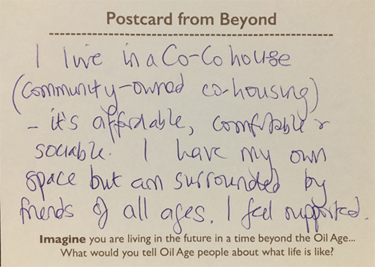 Postcard from Beyond
I live in a Co-Co house
(community-owned co-housing)
- it's affordable, comfortable &
sociable. I have my own
space but am surrounded by
friends of all ages. I feel supported.
Imagine you are living in the future in a time beyond the Oil Age...
What would you tell Oil Age people about what life is like?